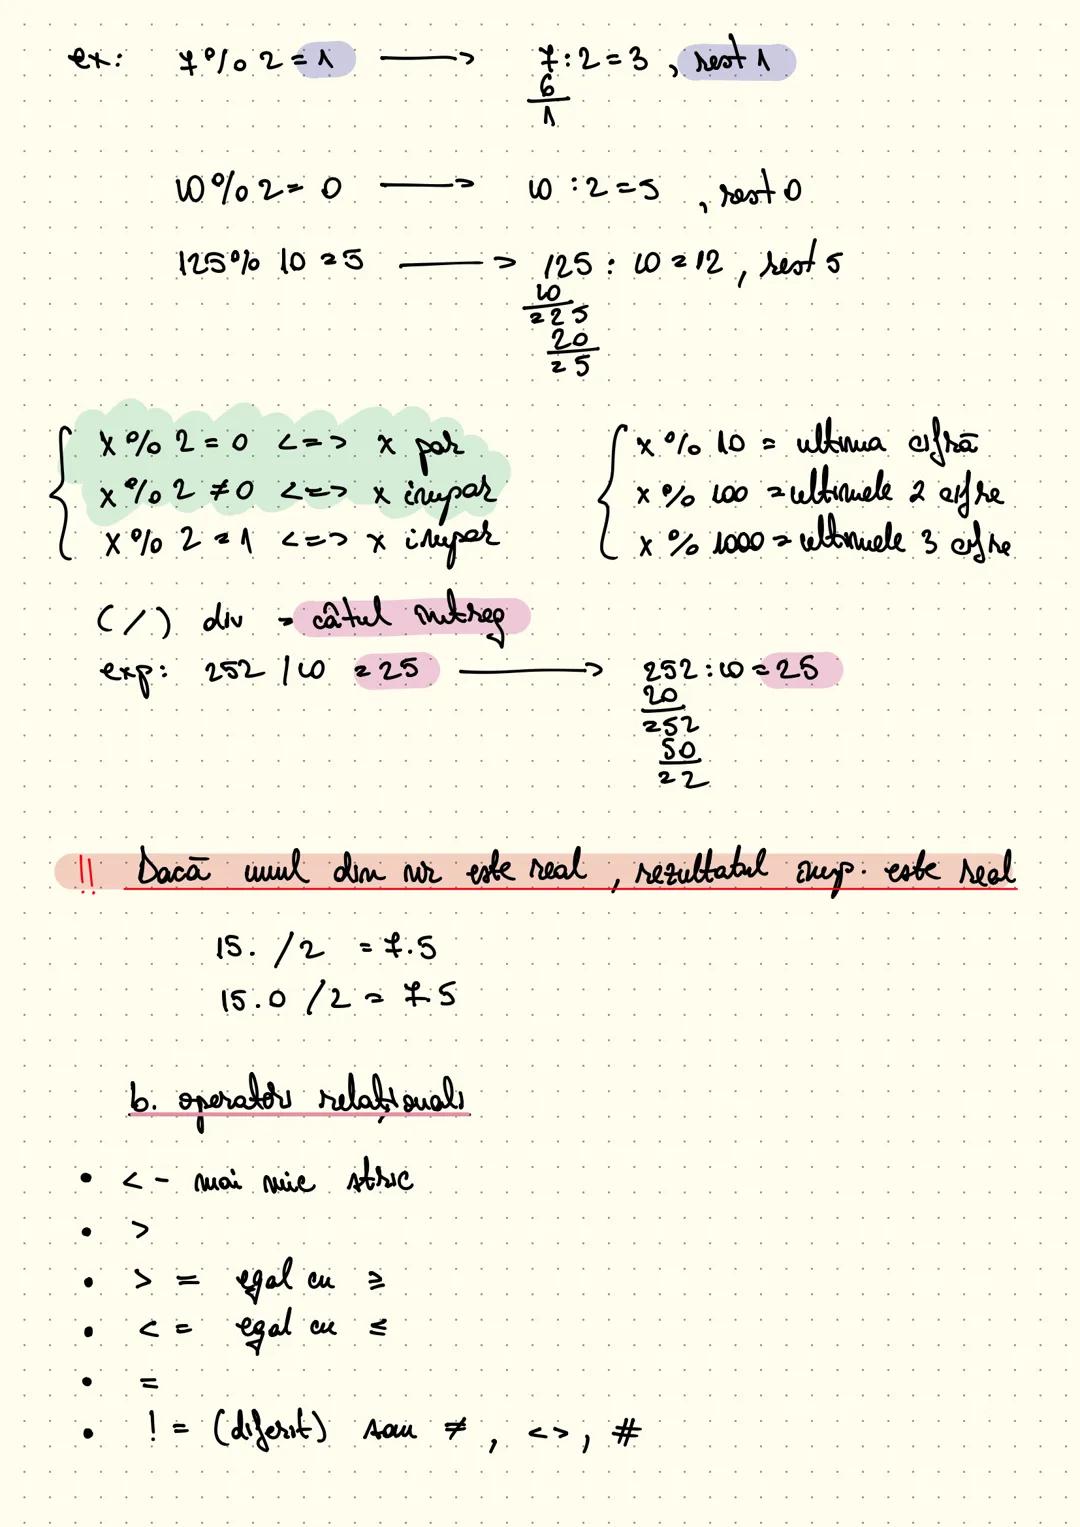 ex: 7 % 2 = 1 → 7 : 2 = 3 , rest 1
6
1
10 % 2 = 0 → 10 : 2 = 5 , rest 0
125 % 10 = 5 → 125 : 10 = 12 , rest 5
10
= 25
20
= 5
x % 2 = 0 <=> x par
x % 2 ≠ 0 <=> x impar
x % 2 = 1 <=> x impar
x % 10 = ultima cifră
x % 100 = ultimele 2 cifre
x % 1000 = ultimele 3 cifre
( / ) div - câtul întreg
exp: 252 / 10 = 25 → 252 : 10 = 25
20
= 52
50
= 2
!! Dacă unul din nr este real , rezultatul imp. este real
15. / 2 = 7.5
15.0 / 2 = 7.5
b. operatori relaționali
• < - mai mic strict
• >
• > = egal cu ≥
• < = egal cu ≤
• =
• ! = (diferit) sau ≠ , <> , #